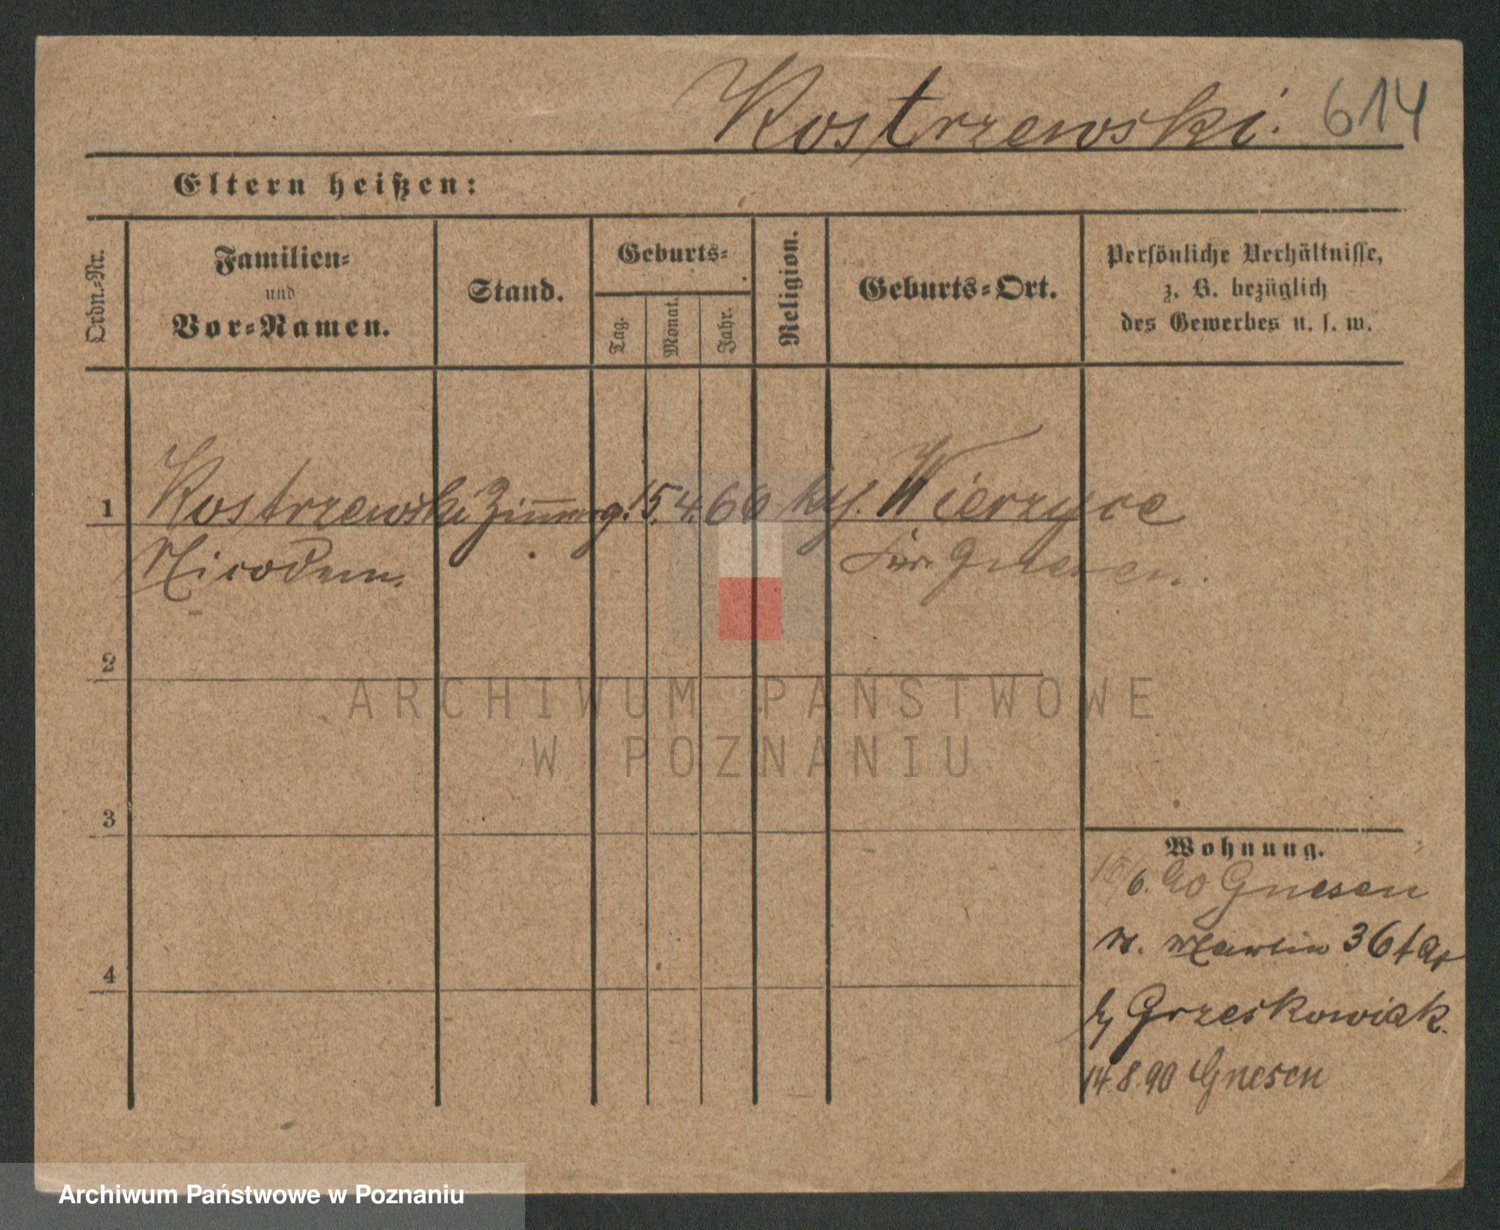 Kostrzewski. 614
Eltern heißen:
Ordn.-Nr.
Familien-
und
Vor-Namen.
Stand.
Geburts-
Tag.
Monat.
Jahr.
Religion.
Geburts-Ort.
Persönliche Verhältnisse,
z. B. bezüglich
des Gewerbes u. s. w.
1 Kostrzewski Zimmerg. 15. 4. 66 kth. Wierzyce
Nicodem. Gnesen.
2
3
4
Wohnung.
6. 90 Gnesen
St. Martin 36
Grzeskowiak.
14.8.90 Gnesen
ARCHIWUM PAŃSTWOWE
W POZNANIU
Archiwum Państwowe w Poznaniu